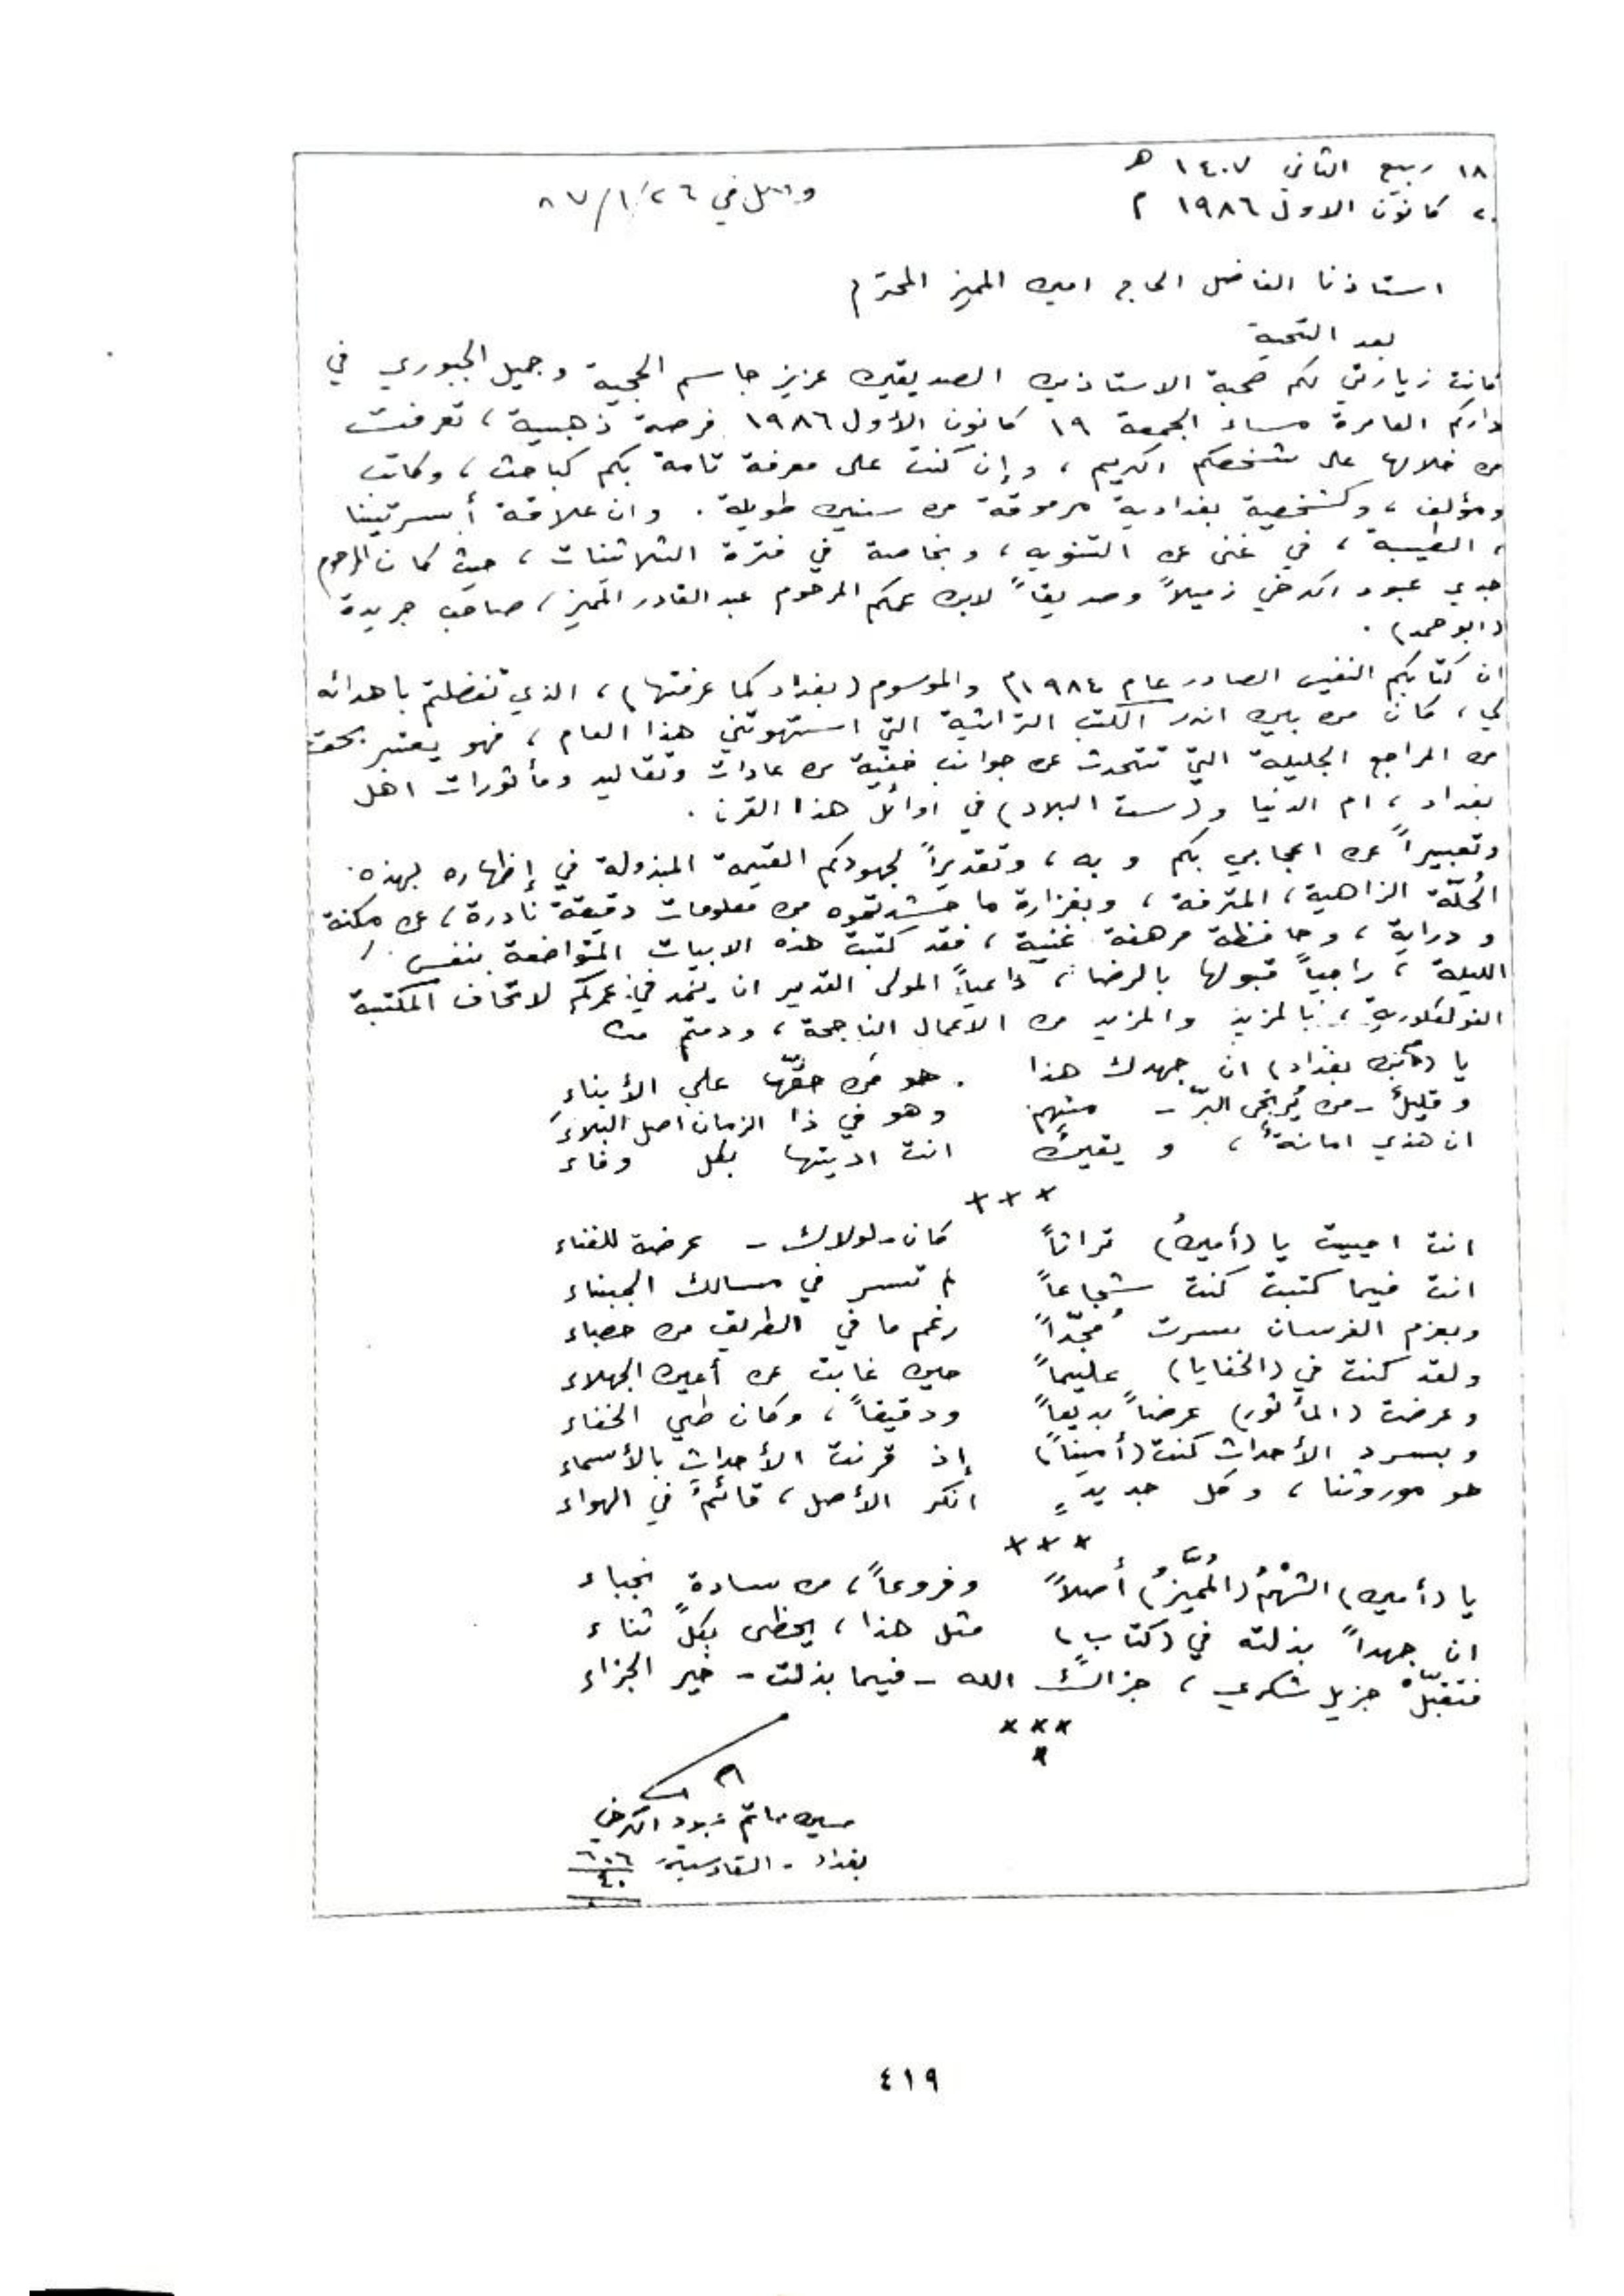 ١٨ ربيع الثاني ١٤٠٧ هـ
٢٠ كانون الاول ١٩٨٦ م
وصل في ٢٦/١/٨٧
استاذنا الفاضل الحاج امين المميز المحترم
بعد التحية
كانت زيارتي لكم صحبة الاستاذين الصديقين عزيز جاسم الحجية وجميل الجبوري في
داركم العامرة مساء الجمعة ١٩ كانون الأول ١٩٨٦ فرصة ذهبية، تعرفت
من خلالها على شخصكم الكريم، وإن كنت على معرفة تامة بكم كباحث، وكاتب
ومؤلف، وكشخصية بغدادية مرموقة من سنين طويلة. وان علاقة أسرتينا
، الطيبة، في غنى عن التنويه، وبخاصة في فترة الثلاثنات، حيث كان المرحوم
جدي عبود الكرخي زميلاً وصديقاً لابن عمكم المرحوم عبدالقادر المميز، صاحب جريدة
(ابو حمد).
ان كتابكم النفيس الصادر عام ١٩٨٤م والموسوم (بغداد كما عرفتها)، الذي تفضلتم باهدائه
لي، كان من بين اندر الكتب التراثية التي استهوتني هذا العام، فهو يعتبر بحق
من المراجع الجليلة التي تتحدث عن جوانب خفية من عادات وتقاليد ومأثورات اهل
بغداد، ام الدنيا و(ست البلاد) في اوائل هذا القرن.
وتعبيراً عن اعجابي بكم وبه، وتقديراً لجهودكم القيمة المبذولة في إظهاره بهذه
الحُلّة الزاهية، المترفة، وبغزارة ما حشدتموه من معلومات دقيقة نادرة، عن مكنة
ودراية، وحافظة مرهفة غنية، فقد كتبت هذه الابيات المتواضعة بنفس
الليلة، راجياً قبولها بالرضا، داعياً المولى القدير ان يمد في عمركم لاتحاف المكتبة
الفولكلورية، بالمزيد والمزيد من الاعمال الناجحة، ودمتم
يا (ابن بغداد) ان جهدك هذا هو من حقّها على الأبناء
وقليلٌ - من يُرتجى البرّ - منهم وهو في ذا الزمان اصل البلاء
ان هذي امانةٌ، ويقين انت اديتها بكل وفاء
×××
انت احييت يا (أمينُ) تراثاً كان - لولاك - عرضة للفناء
انت فيما كتبت كنت شجاعاً لم تسر في مسالك الجبناء
وبعزم الفرسان سرت مُجدّاً رغم ما في الطريق من حصباء
ولقد كنت في (الخفايا) عليماً حين غابت عن أعين الجهلاء
وعرضت (المأثور) عرضاً بديعاً ودقيقاً، وكان طي الخفاء
وبسرد الأحداث كنت (أميناً) إذ قرنت الأحداث بالأسماء
هو موروثنا، وكل جديدٍ انكر الأصل، قائمٌ في الهواء
×××
يا (أمين) الشهْمُ (المُميّزُ) أصلاً وفروعاً، من سادة نجباء
ان جهداً بذلته في (كتاب) مثل هذا، يحظى بكل ثناء
فتقبّلْ جزيل شكري، جزاك الله - فيما بذلت - خير الجزاء
×××
×
حسين حاتم عبود الكرخي
بغداد - القادسية ٦٠٦
٤٠
٤١٩